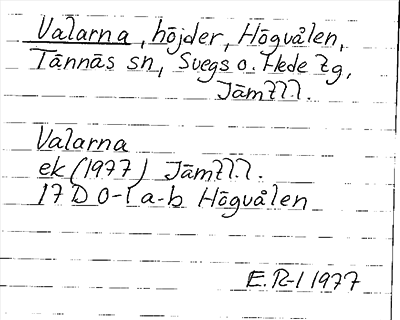 Valarna, höjder, Högvålen,
Tännäs sn, Svegs o. Hede tg,
Jämtll.
Valarna
ek (1977) Jämtll.
17 D 0-1 a-b Högvålen
E. R-l 1977